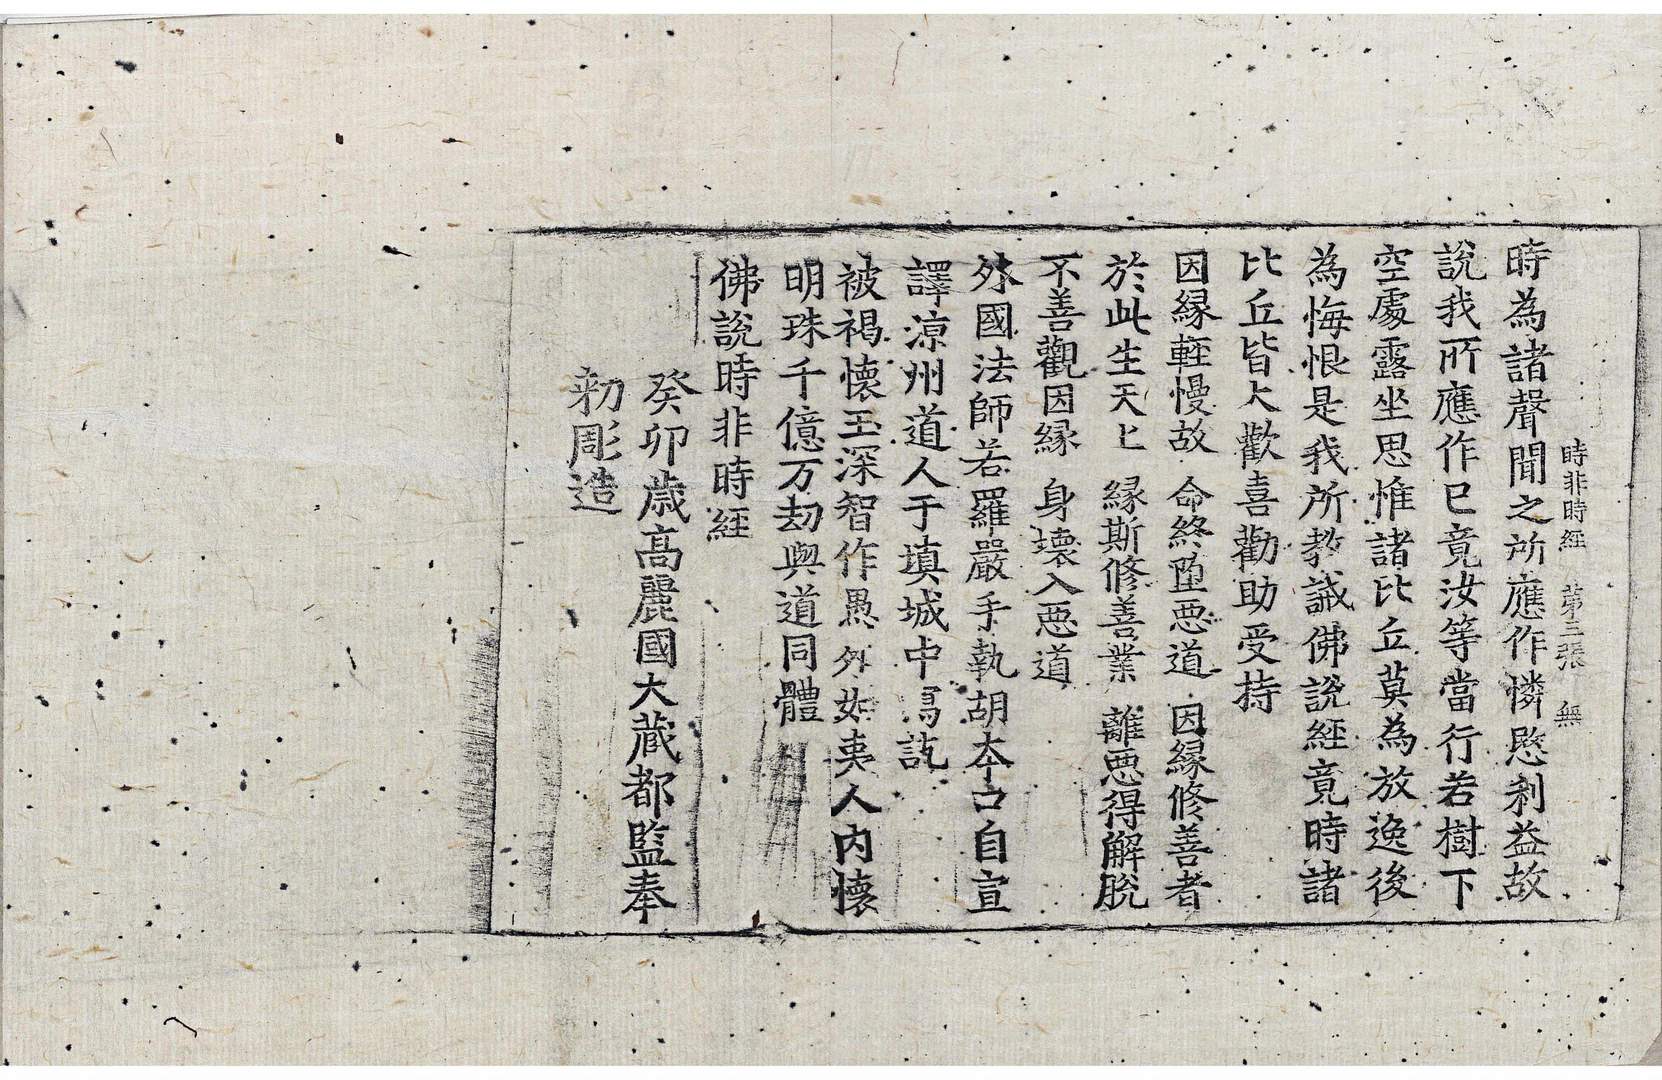 時非時經 第三張 無
時為諸聲聞之所應作憐愍利益故
說我所應作已竟汝等當行若樹下
空處露坐思惟諸比丘莫為放逸後
為悔恨是我所教誡佛說經竟時諸
比丘皆大歡喜勸助受持
因緣輕慢故 命終墮惡道 因緣修善者
於此生天上 緣斯修善業 離惡得解脫
不善觀因緣 身壞入惡道
外國法師若羅嚴手執胡本口自宣
譯涼州道人于填城中寫訖
被褐懷玉深智作愚外如夷人內懷
明珠千億万劫與道同體
佛說時非時經
癸卯歲高麗國大藏都監奉
勑彫造